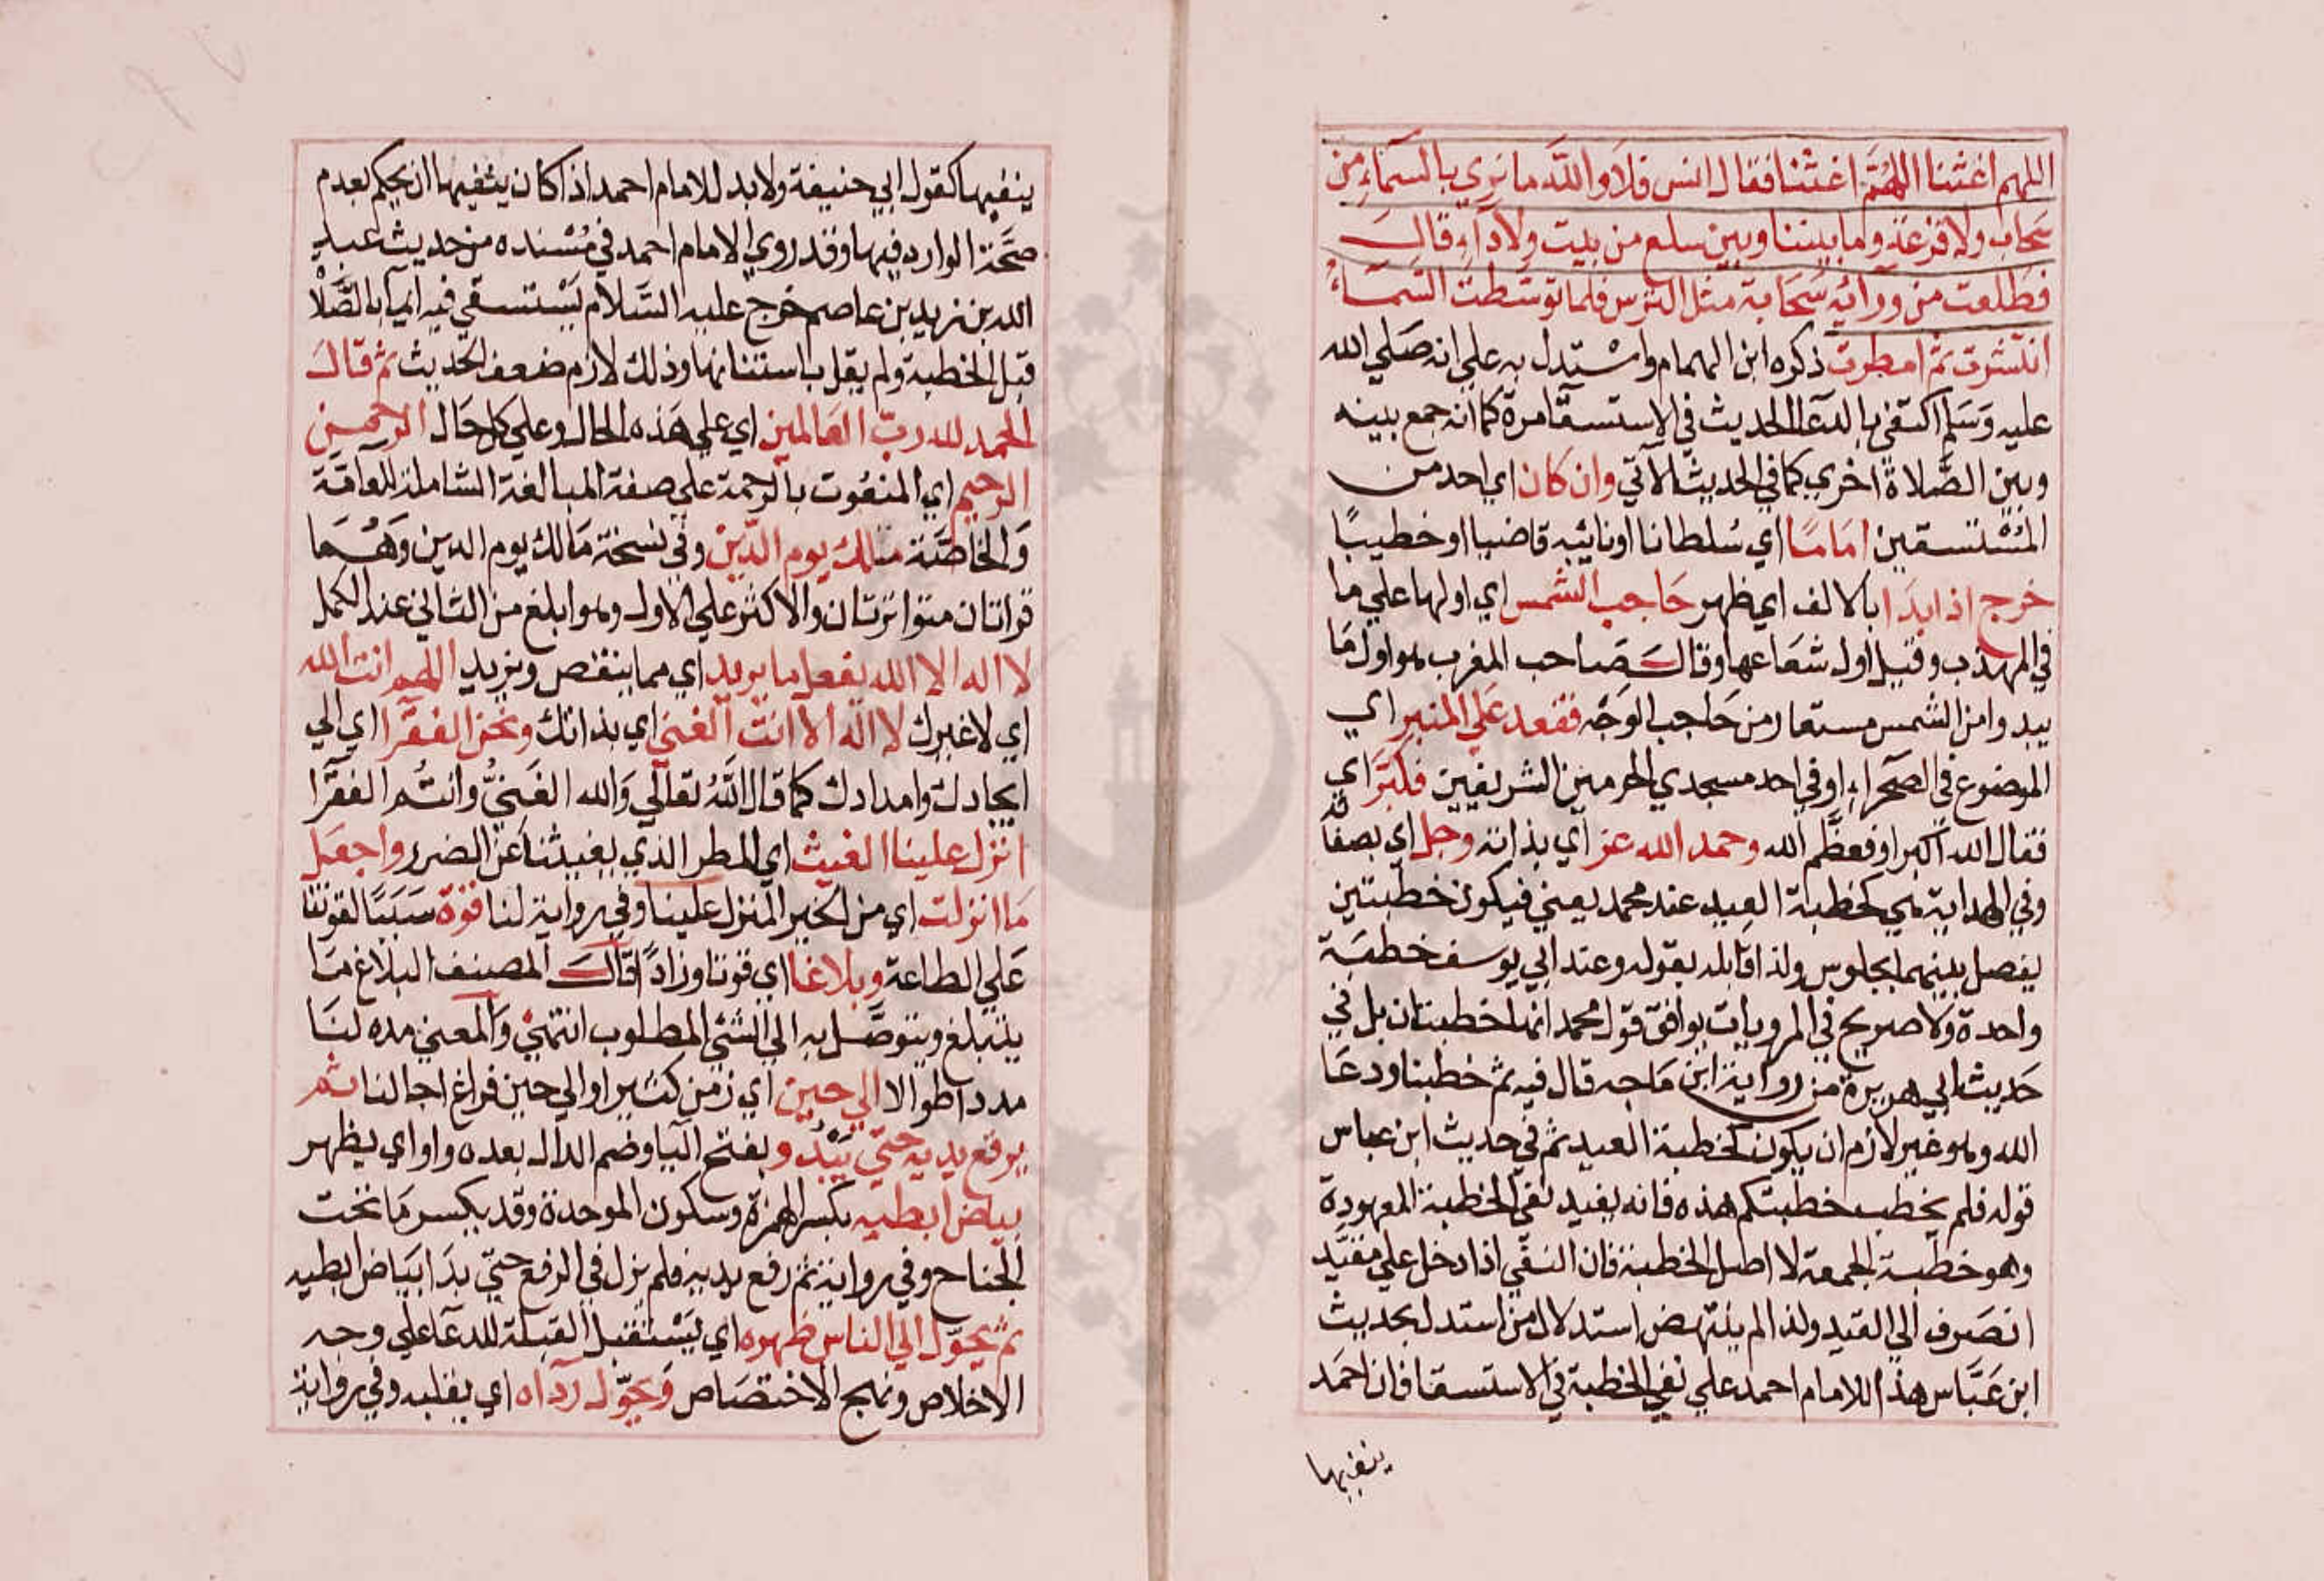 اللهم اغثنا اللهم اغثنا فقال انس فلا والله ما نري بالسماء من
سحاب ولا قزعة وما بيننا وبين سلع من بيت ولا دآء قال
فطلعت من ورآئه سحابة مثل الترس فلما توسطت السماء
انتشرت ثم امطرت ذكره ابن الهمام واستدل به علي انه صلي الله
عليه وسلم اكتفي بالدعا الحديث في الاستسقا مرة كما انه جمع بينه
وبين الصلاة اخري كما في الحديث الآتي وان كان اي احد من
المستسقين اماما اي سلطانا او نائبه قاضيا او خطيبا
خرج اذا بدا بالالف اي ظهر حاجب الشمس اي اولها علي ما
في المهذب وقيل اول شعاعها وقال صاحب المغرب هو اول ما
يبدوا من الشمس مستعار من حاجب الوجه فقعد علي المنبر اي
الموضوع في الصحراء او في احد مسجدي الحرمين الشريفين فكبر اي
فقال الله اكبر او فعظم الله وحمد الله عز اي بذاته وجل اي بصفاته
وفي الهداية هي كخطبة العيد عند محمد يعني فيكون خطبتين
يفصل بينهما بجلوس ولذا قابله بقوله وعند ابي يوسف خطبة
واحدة ولا صريح في المرويات يوافق قول محمد انها خطبتان بل في
حديث ابي هريرة من رواية ابن ماجه قال فيه ثم خطبنا ودعا
الله وهو غير لازم ان يكون كخطبة العيد ثم في حديث ابن عباس
قوله فلم يخطب خطبتكم هذه فانه يفيد نفي الخطبة المعهودة
وهو خطبة الجمعة لا اصل الخطبة فان النفي اذا دخل علي مقيد
انصرف الي القيد ولذا لم ينتهض استدلال من استدل بحديث
ابن عباس هذا للامام احمد علي نفي الخطبة في الاستسقا فان احمد
ينفيها
ينفيها كقول ابي حنيفة ولا بد للامام احمد اذا كان ينفيها ان يحكم بعدم
صحة الوارد فيها وقد روي الامام احمد في مسنده من حديث عبد
الله بن زيد بن عاصم خرج عليه السلام يستسقي فبدأ بالصلاة
قبل الخطبة ولم يقل باستنانها وذلك لازم ضعف الحديث ثم قال
الحمد لله رب العالمين اي علي هذه الحال وعلي كل حال الرحمن
الرحيم اي المنعوت بالرحمة علي صفة المبالغة الشاملة للعامة
والخاصة ملك يوم الدين وفي نسخة مالك يوم الدين وهما
قراتان متواترتان والاكثر علي الاول وهو ابلغ من الثاني عند الكمل
لا اله الا الله يفعل ما يريد اي مما ينقص ويزيد اللهم انت الله
اي لا غيرك لا اله الا انت الغني اي بذاتك ونحن الفقرا اي الي
ايجادك وامدادك كما قال الله تعالي والله الغني وانتم الفقرآ
انزل علينا الغيث اي المطر الذي يغيثنا عن الضرر واجعل
ما انزلت اي من الخير المنزل علينا وفي رواية لنا قوة سببا لقوتنا
علي الطاعة وبلاغا اي قوتا وزادا قال المصنف البلاغ ما
يتبلغ ويتوصل به الي الشئ المطلوب انتهي والمعني مده لنا
مددا طوالا الي حين اي زمن كثير او الي حين فراغ اجالنا ثم
يرفع يديه حتي يبدو بفتح اليا وضم الدال بعده واو اي يظهر
بياض ابطيه بكسر الهمزة وسكون الموحدة وقد يكسر ما تحت
الجناح وفي رواية ثم رفع يديه فلم يزل في الرفع حتي بدا بياض ابطيه
ثم يحول الي الناس ظهره اي يستقبل القبلة للدعا علي وجه
الاخلاص ونهج الاختصاص ويحول رداه اي يقلبه وفي رواية